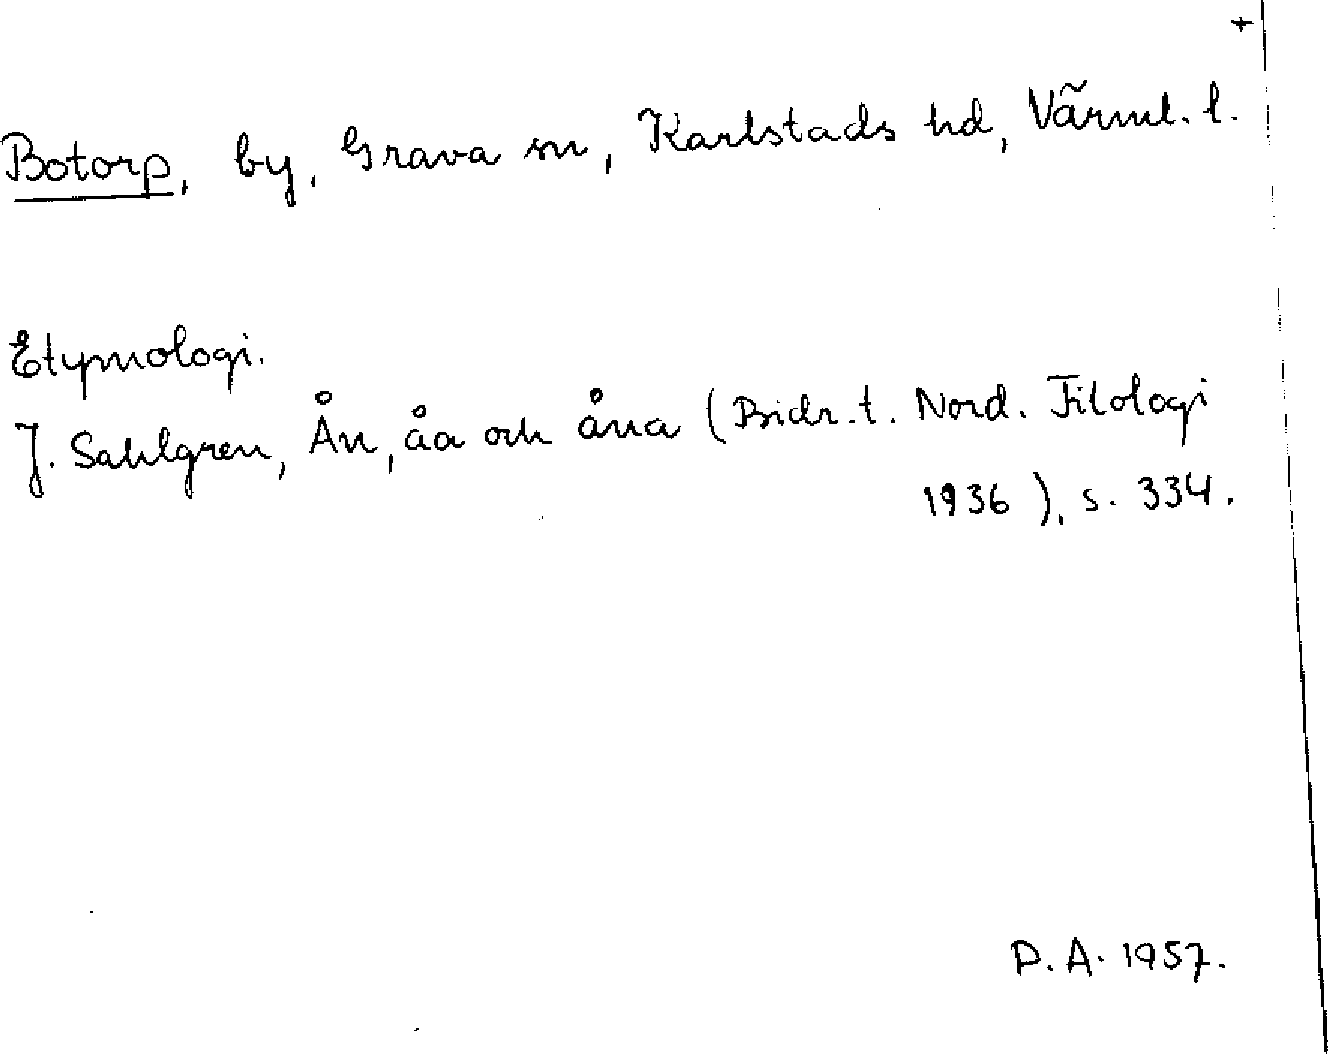 +
Botorp, by, Grava sn, Karlstads hd, Värml. l.
Etymologi.
J. Sahlgren, Ån, åa och åna (Bidr. t. Nord. Filologi
1936), s. 334.
D. A. 1957.